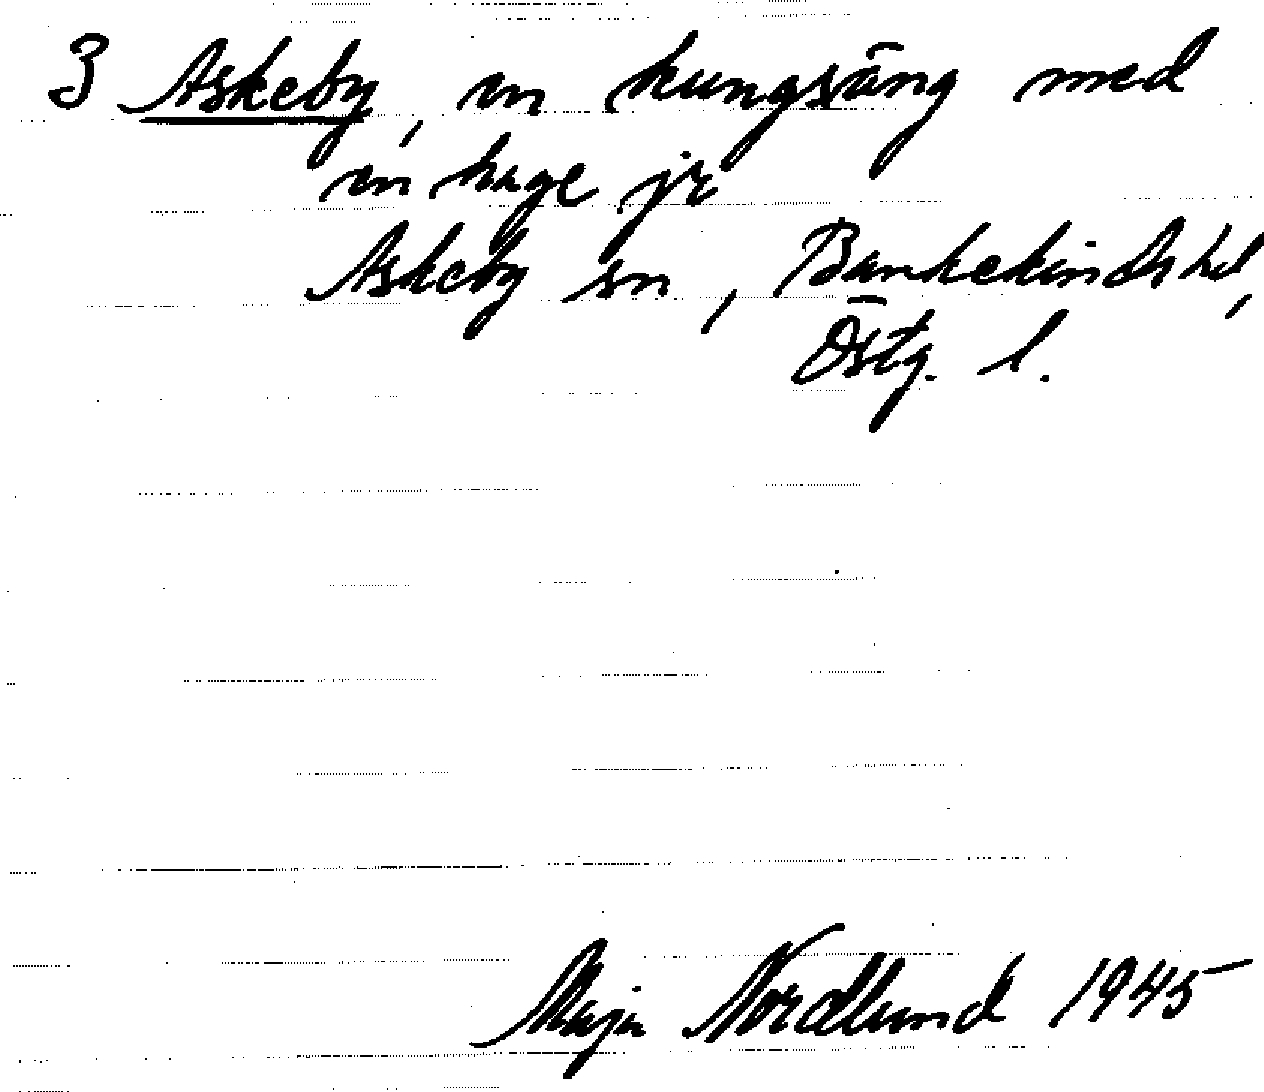 3 Askeby, en kungsäng med
en hage jr
Askeby sn, Bankekinds hd,
Östg. l.
Maja Nordlund 1945